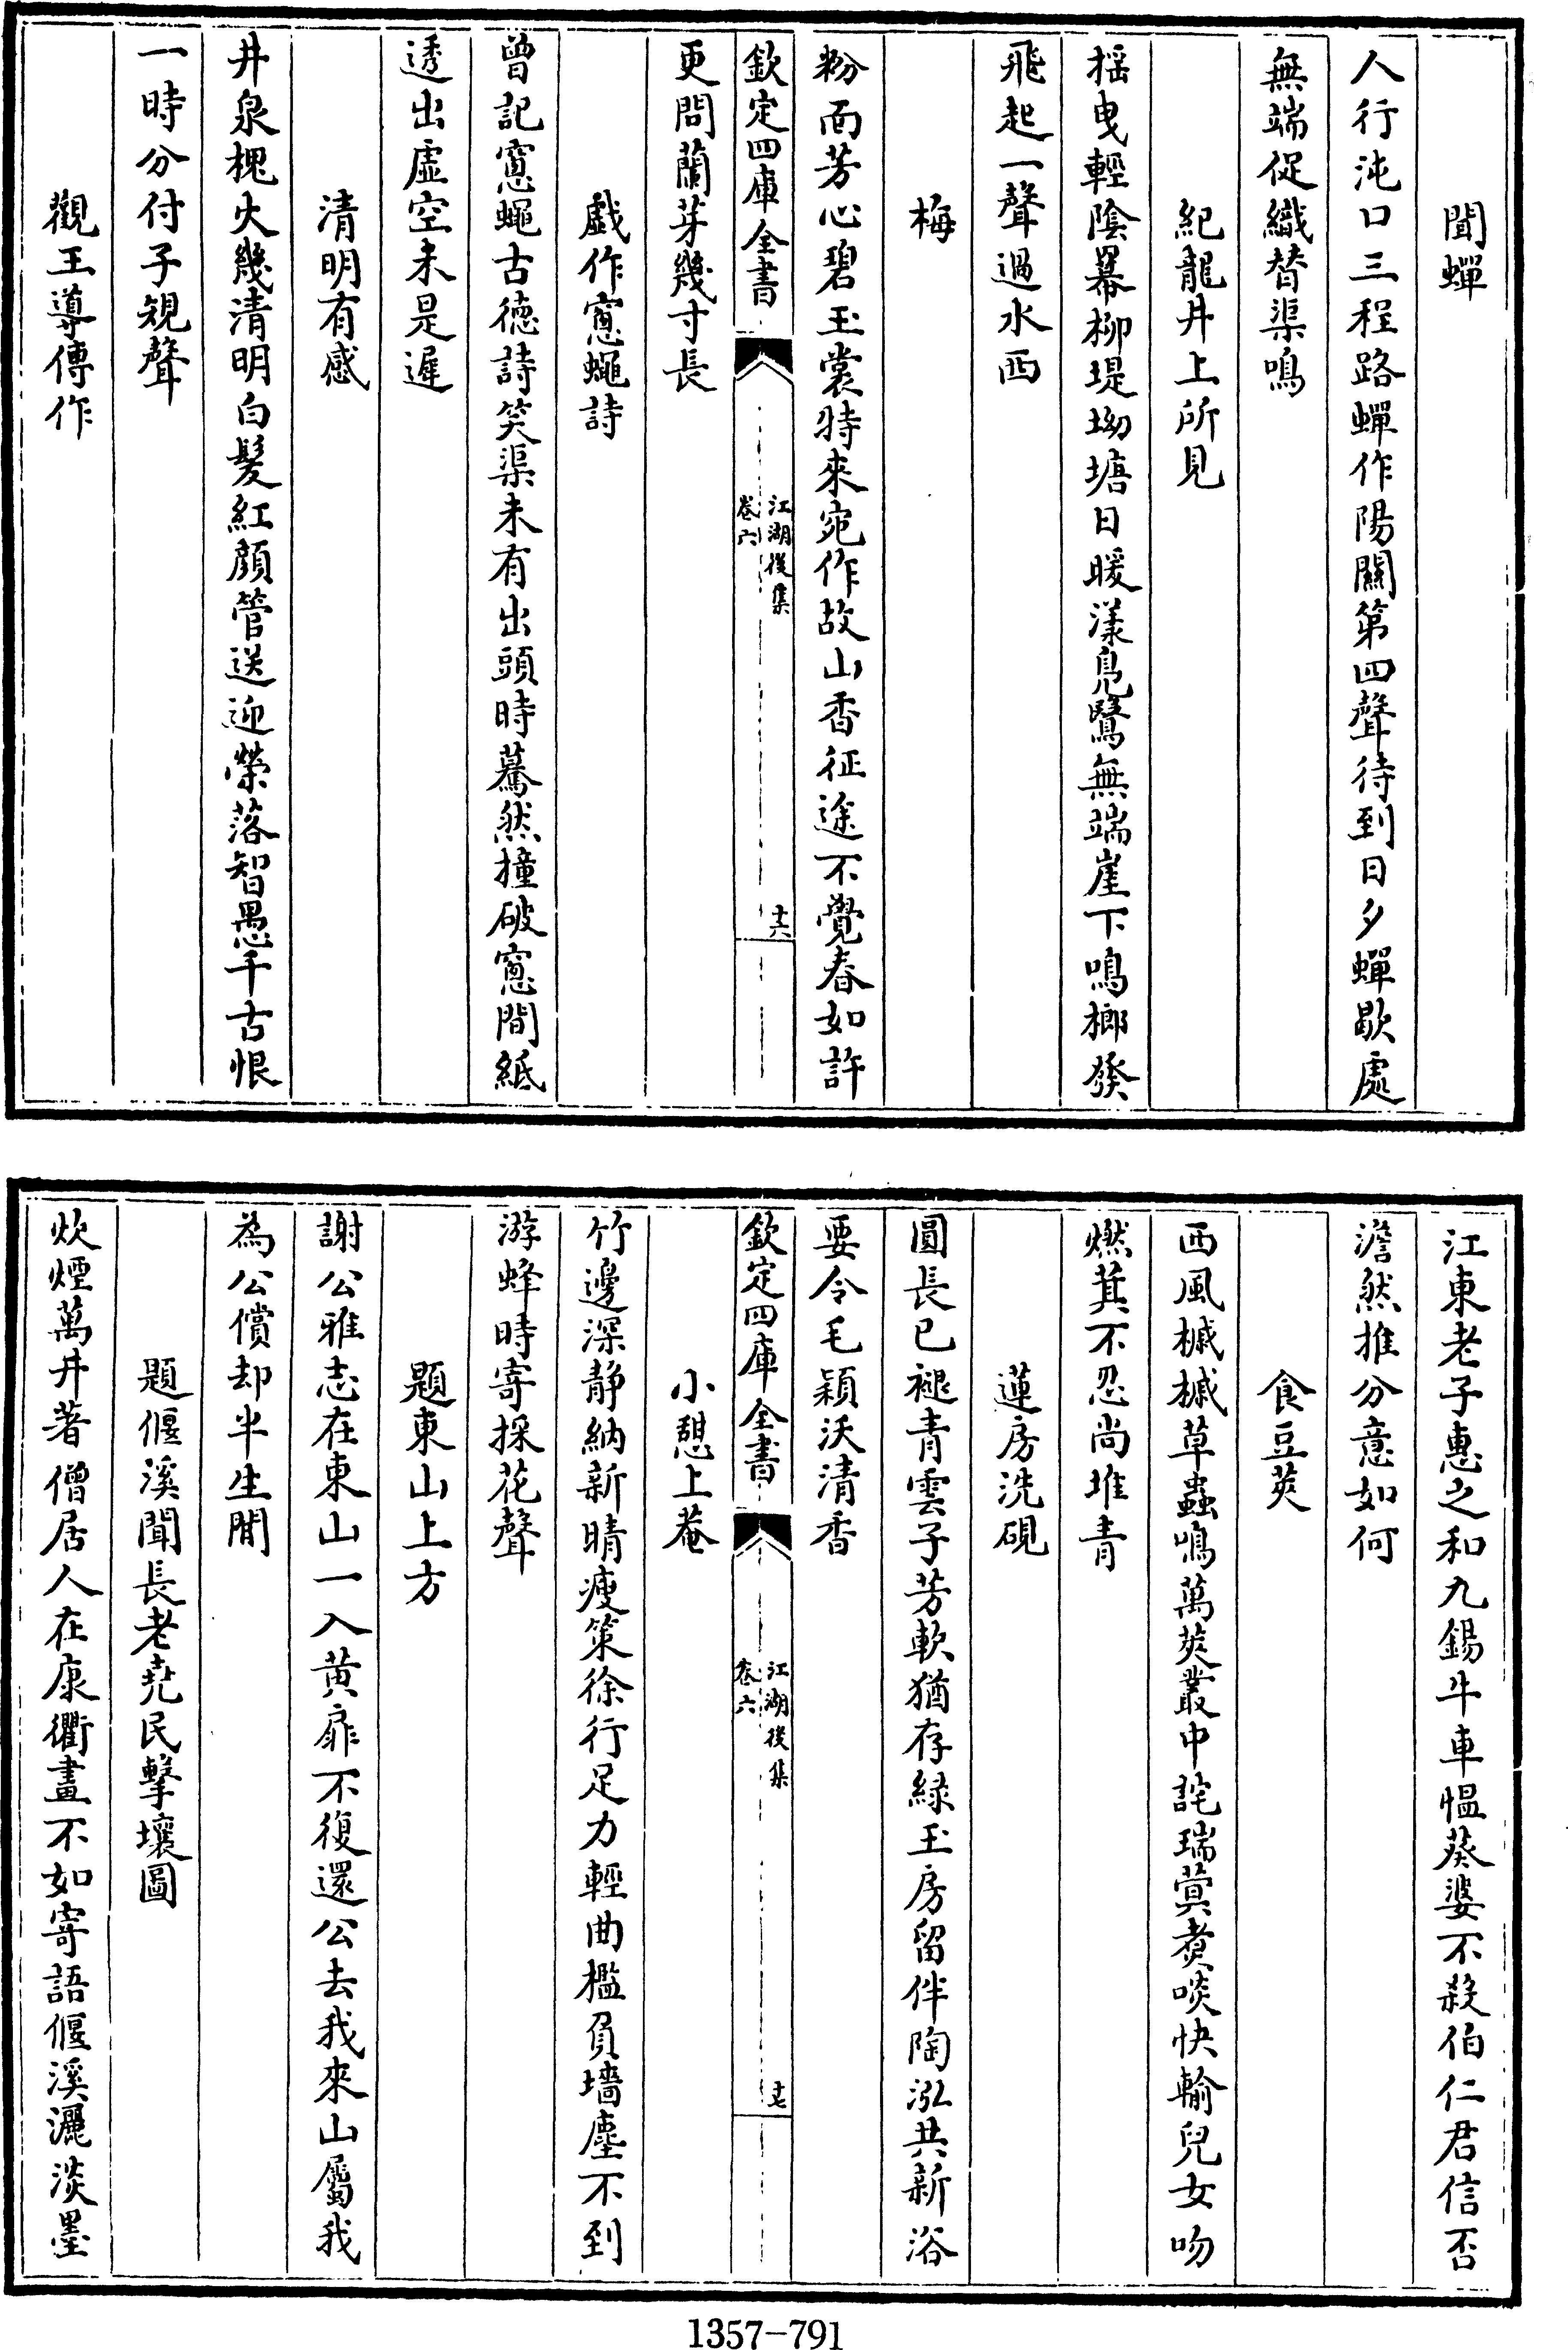 聞蟬
人行沌口三程路蟬作陽關第四聲待到日夕蟬歇處
無端促織替渠鳴
紀龍井上所見
揺曳輕陰羃柳堤坳塘日暖漾鳬鷖無端崖下鳴榔發
飛起一聲過水西
梅
粉面芳心碧玉裳特來宛作故山香征途不覺春如許
欽定四庫全書
江湖後集
卷六
十六
更問蘭芽幾寸長
戲作窻蠅詩
曾記窻蠅古德詩笑渠未有出頭時驀然撞破窻間紙
透出虛空未是遲
清明有感
井泉槐火幾清明白髮紅顔管送迎榮落智愚千古恨
一時分付子規聲
觀王導傳作
江東老子惠之和九錫牛車愠葵婆不殺伯仁君信否
澹然推分意如何
食豆莢
西風槭槭草蟲鳴萬莢叢中詫瑞蓂煑啖快輸兒女吻
燃萁不忍尚堆青
蓮房洗硯
圓長已褪青雲子芳軟猶存緑玉房留伴陶泓共新浴
要令毛穎沃清香
欽定四庫全書
江湖後集
卷六
十七
小憩上菴
竹邊深靜納新晴瘦策徐行足力輕曲檻負墻塵不到
游蜂時寄採花聲
題東山上方
謝公雅志在東山一入黄扉不復還公去我來山屬我
為公償却半生閒
題偃溪聞長老尭民擊壤圖
炊煙萬井著僧居人在康衢畫不如寄語偃溪灑淡墨
1357-791